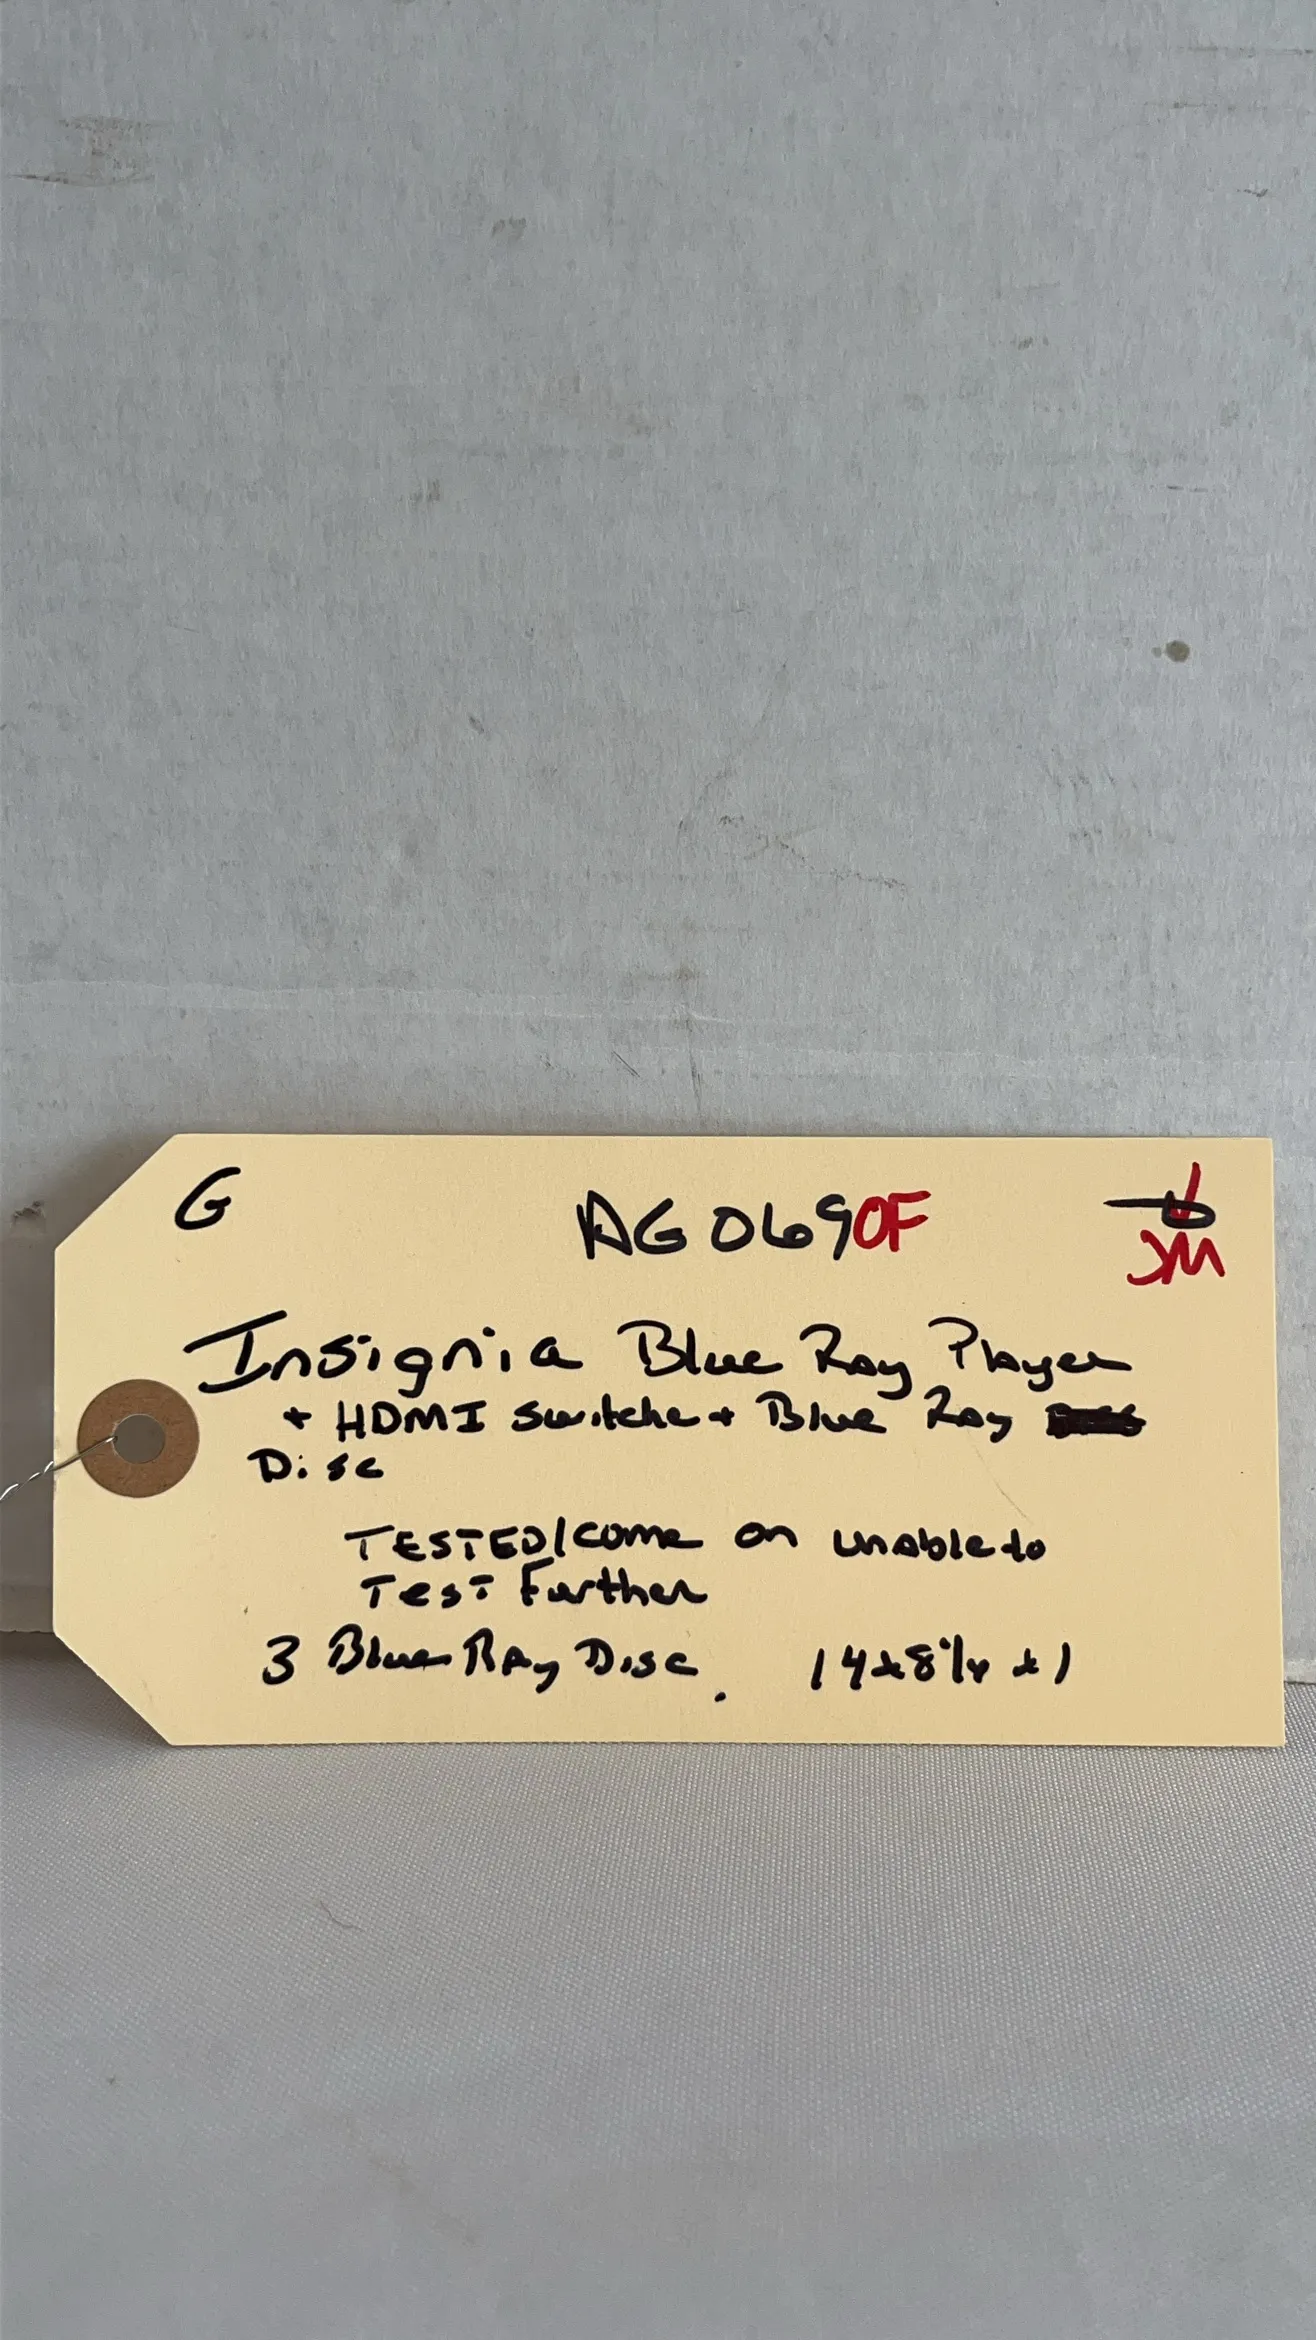 G
AG0690F
JM
Insignia Blue Ray Player
+ HDMI Switche + Blue Ray
Disc
TESTED/come on unable to
TesT Further
3 Blue Ray Disc. 14x8¼x1